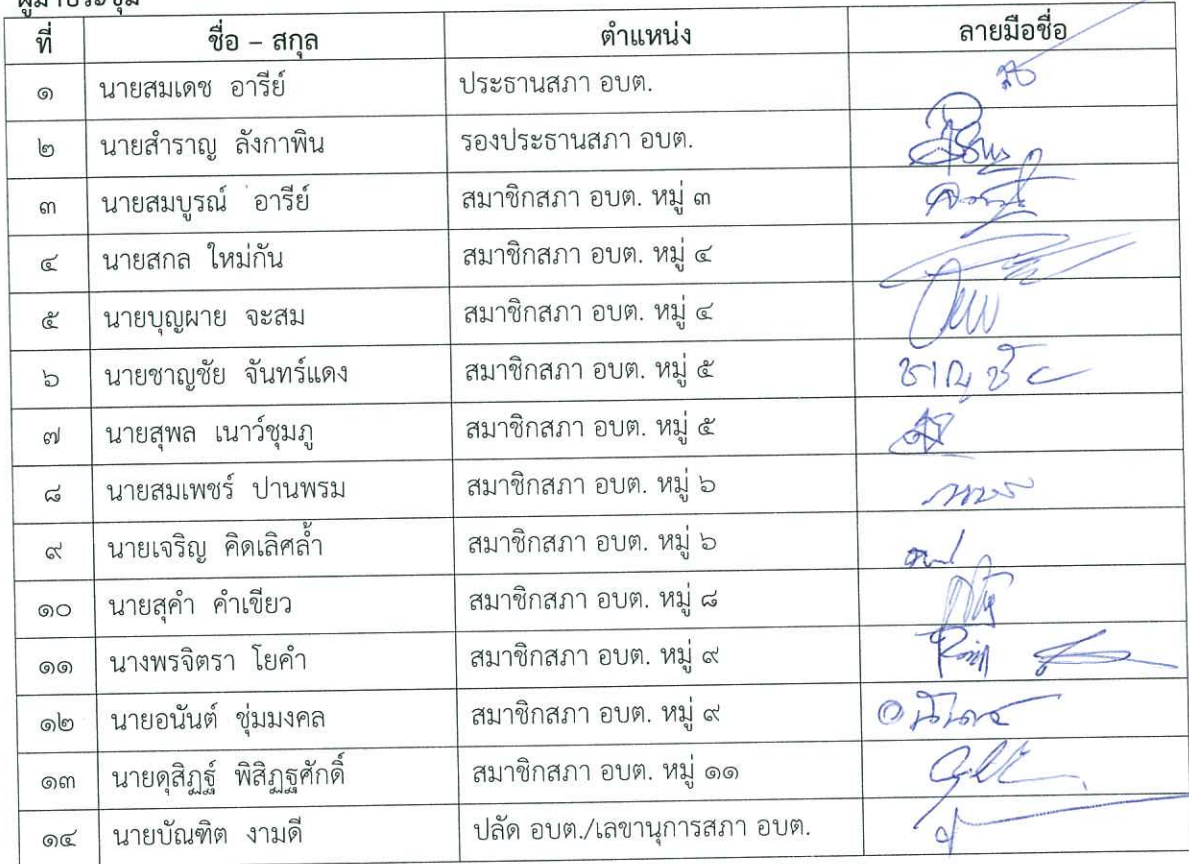 ผู้มาประชุม
ที่ ชื่อ – สกุล ตำแหน่ง ลายมือชื่อ
๑ นายสมเดช อารีย์ ประธานสภา อบต.
๒ นายสำราญ ลังกาพิน รองประธานสภา อบต.
๓ นายสมบูรณ์ อารีย์ สมาชิกสภา อบต. หมู่ ๓
๔ นายสกล ใหม่กัน สมาชิกสภา อบต. หมู่ ๔
๕ นายบุญผาย จะสม สมาชิกสภา อบต. หมู่ ๔
๖ นายชาญชัย จันทร์แดง สมาชิกสภา อบต. หมู่ ๕ ชาญชัย
๗ นายสุพล เนาว์ชุมภู สมาชิกสภา อบต. หมู่ ๕
๘ นายสมเพชร์ ปานพรม สมาชิกสภา อบต. หมู่ ๖
๙ นายเจริญ คิดเลิศล้ำ สมาชิกสภา อบต. หมู่ ๖
๑๐ นายสุคำ คำเขียว สมาชิกสภา อบต. หมู่ ๘
๑๑ นางพรจิตรา โยคำ สมาชิกสภา อบต. หมู่ ๙
๑๒ นายอนันต์ ชุ่มมงคล สมาชิกสภา อบต. หมู่ ๙
๑๓ นายดุสิฏฐ์ พิสิฏฐศักดิ์ สมาชิกสภา อบต. หมู่ ๑๑
๑๔ นายบัณฑิต งามดี ปลัด อบต./เลขานุการสภา อบต.